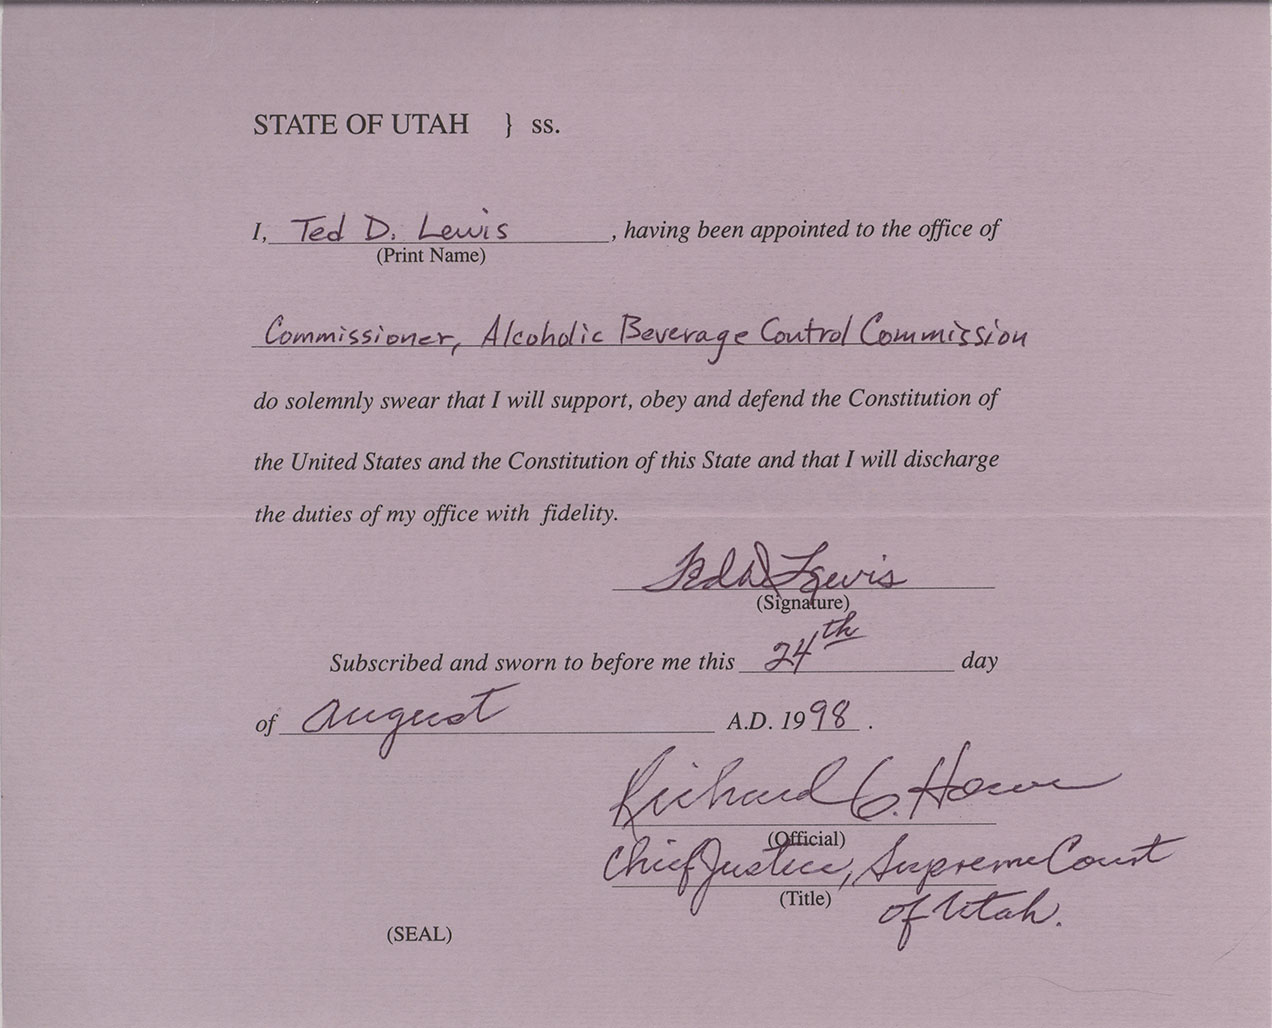 STATE OF UTAH } ss.
I, Ted D. Lewis, having been appointed to the office of
(Print Name)
Commissioner, Alcoholic Beverage Control Commission
do solemnly swear that I will support, obey and defend the Constitution of
the United States and the Constitution of this State and that I will discharge
the duties of my office with fidelity.
Ted D Lewis
(Signature)
Subscribed and sworn to before me this 24th day
of August A.D. 1998.
Richard C. Howe
(Official)
Chief Justice, Supreme Court
(Title) of Utah.
(SEAL)